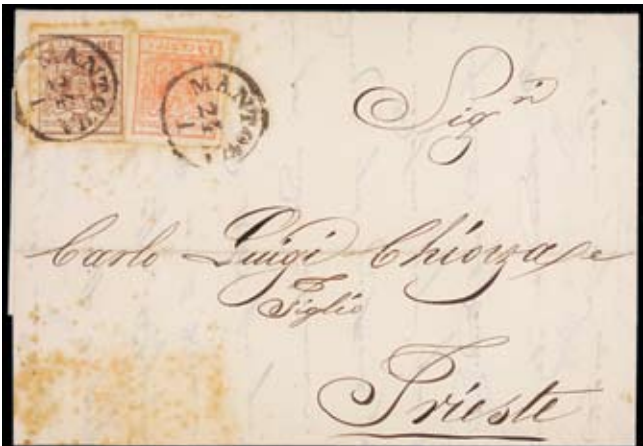 MANTOVA
MANTOVA
24
1
Sig.ri
Carlo Luigi Chiozza e
Figlio
Trieste